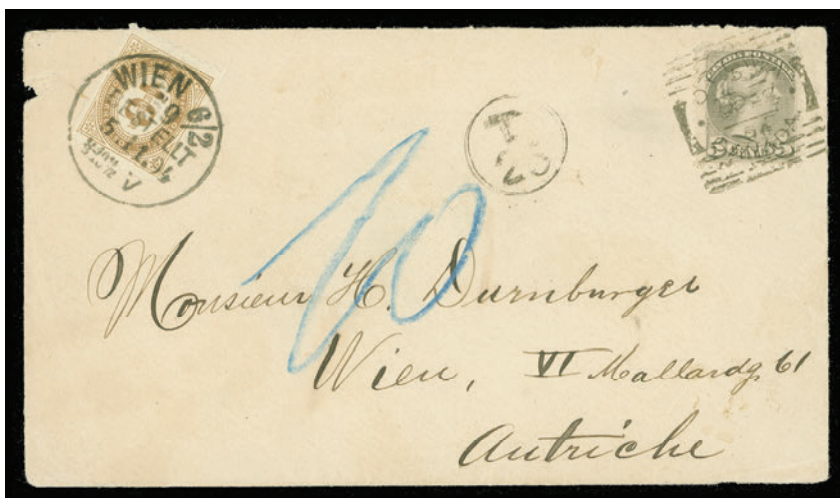 WIEN 6/2
BESTELLT
T.
20
CANADA POSTAGE
5 CENTS 5
10
Monsieur H. Durnburger
Wien, VI Mallardg. 61
Autriche